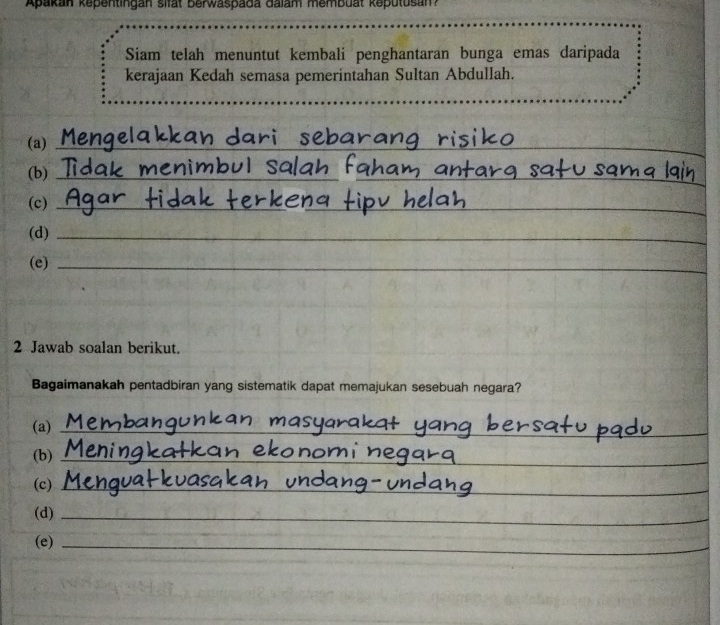 Apakah kepentingan sifat berwaspada dalam membuat keputusan?
Siam telah menuntut kembali penghantaran bunga emas daripada
kerajaan Kedah semasa pemerintahan Sultan Abdullah.
(a) Mengelakkan dari sebarang risiko
(b) Tidak menimbul salah faham antara satu sama lain
(c) Agar tidak terkena tipu helah
(d)
(e)
2 Jawab soalan berikut.
Bagaimanakah pentadbiran yang sistematik dapat memajukan sesebuah negara?
(a) Membangunkan masyarakat yang bersatu padu
(b) Meningkatkan ekonomi negara
(c) Menguatkuasakan undang-undang
(d)
(e)